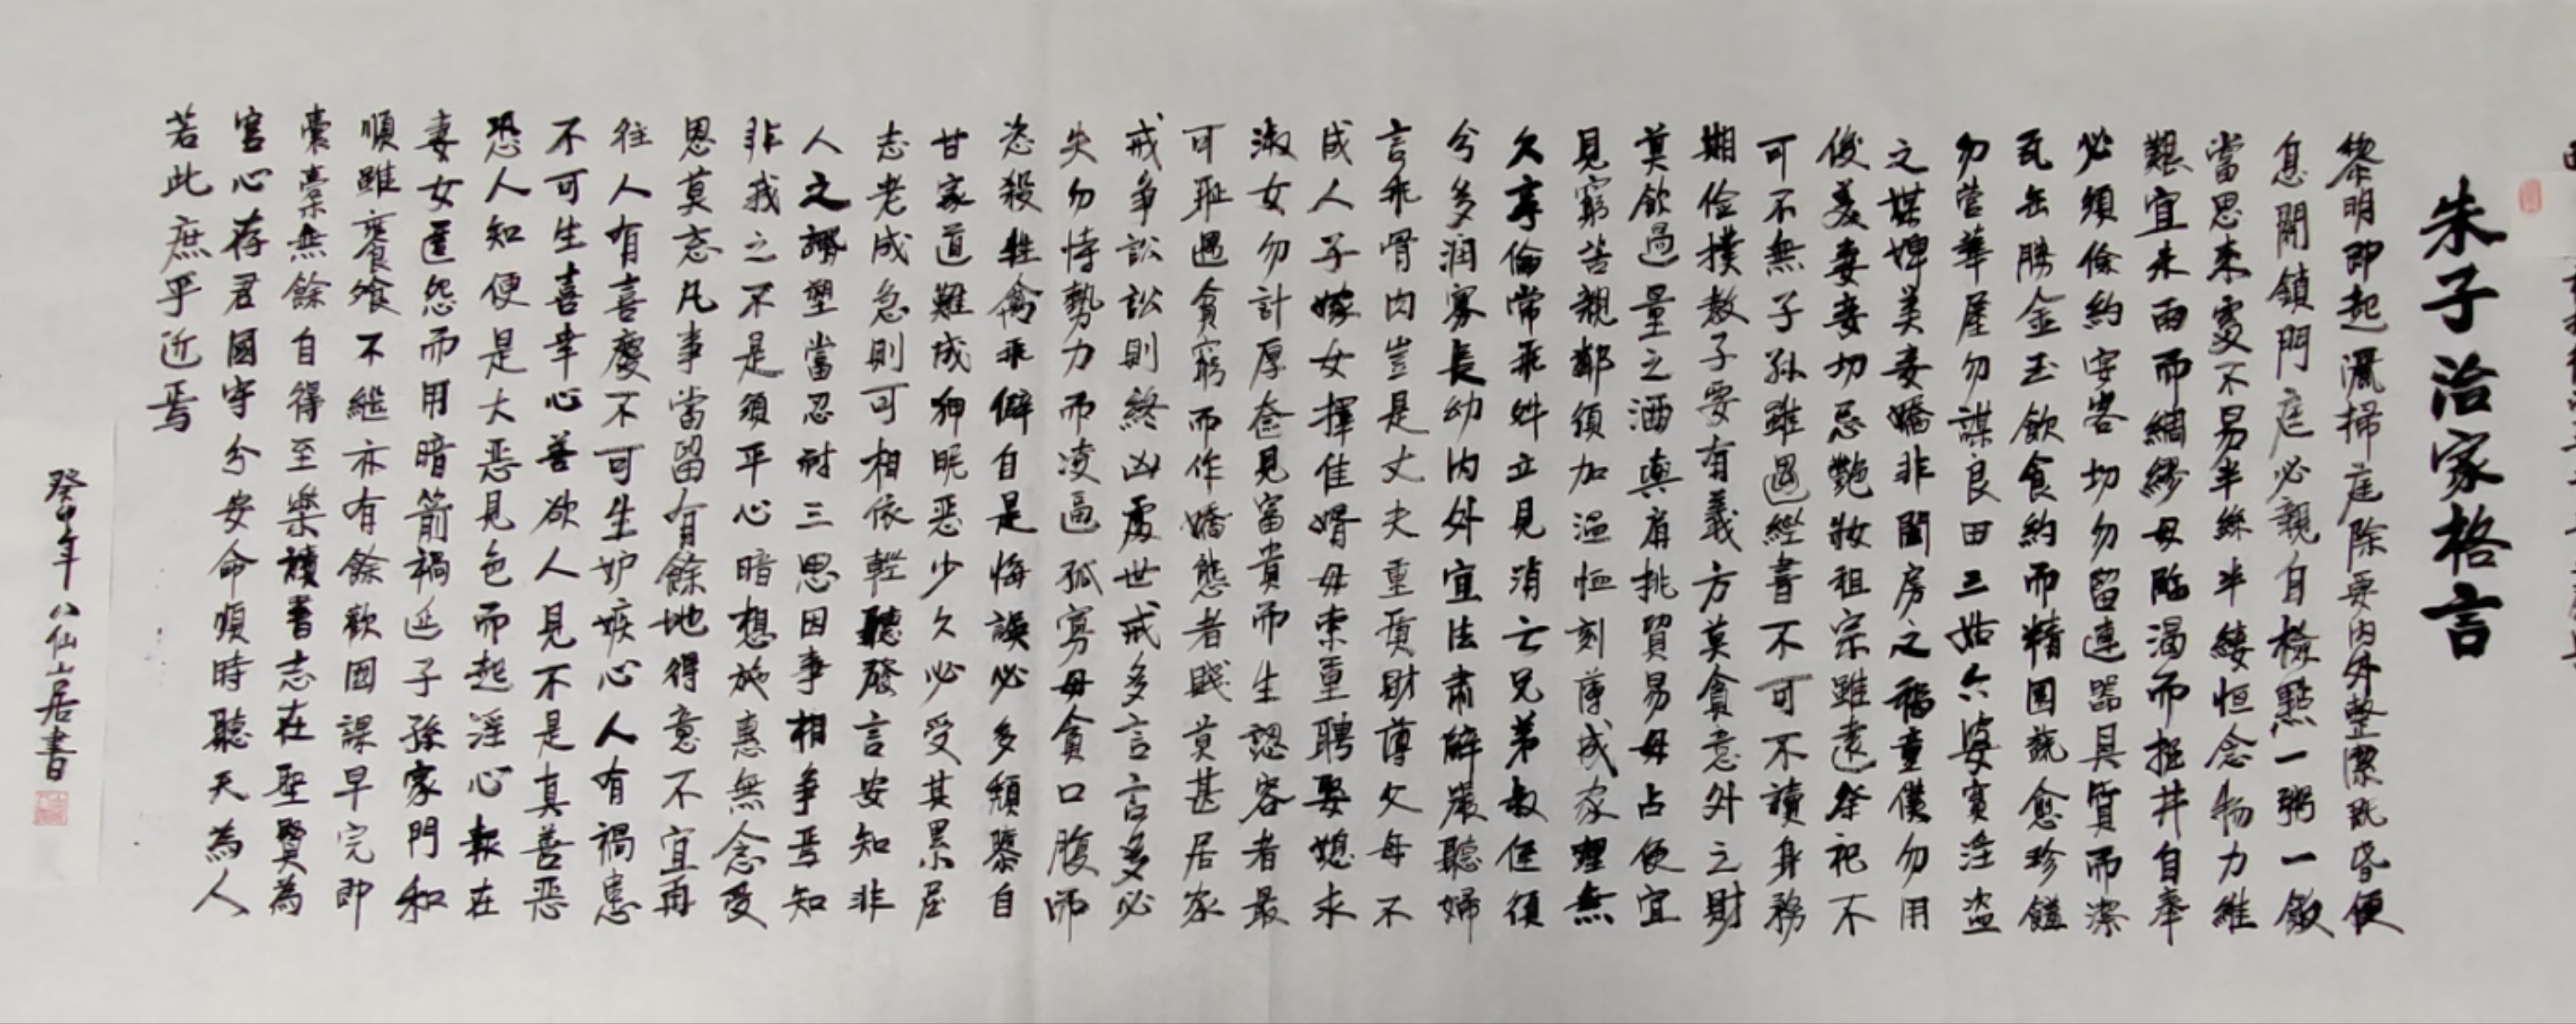 朱子治家格言
黎明即起灑掃庭除要内外整潔既昏便
息關鎖門庭必親自檢點一粥一飯
當思來處不易半絲半縷恒念物力維
艱宜未雨而綢繆毋臨渴而掘井自奉
必須儉約宴客切勿留連器具質而潔
瓦缶勝金玉飲食約而精園蔬愈珍饈
勿营華屋勿謀良田三姑六婆實淫盗
之媒婢美妾嬌非閨房之福童僕勿用
俊美妻妾切忌艷妝祖宗雖遠祭祀不
可不無子孫雖遇經書不可不讀身務
期儉撲教子要有義方莫貪意外之財
莫飲過量之酒與肩挑貿易毋占便宜
見窮苦親鄰須加温恤刻薄成家理無
久享倫常乖舛立見消亡兄弟叔侄須
分多润寡長幼内外宜法肅辭嚴聽婦
言乖骨肉豈是丈夫重貲財薄父母不
成人子嫁女擇佳婿毋索重聘娶媳求
淑女勿計厚奩見富貴而生認容者最
可耻遇貧窮而作嬌態者賤莫甚居家
戒争訟訟則終凶處世戒多言言多必
失勿恃勢力而凌逼孤寡毋貪口腹而
恣殺牲禽乖僻自是悔誤必多頹隳自
甘家道難成狎昵恶少久必受其累屈
志老成急則可相依輕聽發言安知非
人之譖塑當忍耐三思因事相争焉知
非我之不是須平心暗想施惠無念受
恩莫忘凡事當留有餘地得意不宜再
往人有喜慶不可生妒嫉心人有禍患
不可生喜幸心善欲人見不是真善恶
恐人知便是大恶見色而起淫心報在
妻女匿怨而用暗箭禍延子孫家門和
順雖饔飧不繼亦有餘歡國課早完即
囊橐無餘自得至樂讀書志在聖賢為
官心存君國守分安命順時聽天為人
若此庶乎近焉
癸卯年八仙山居書